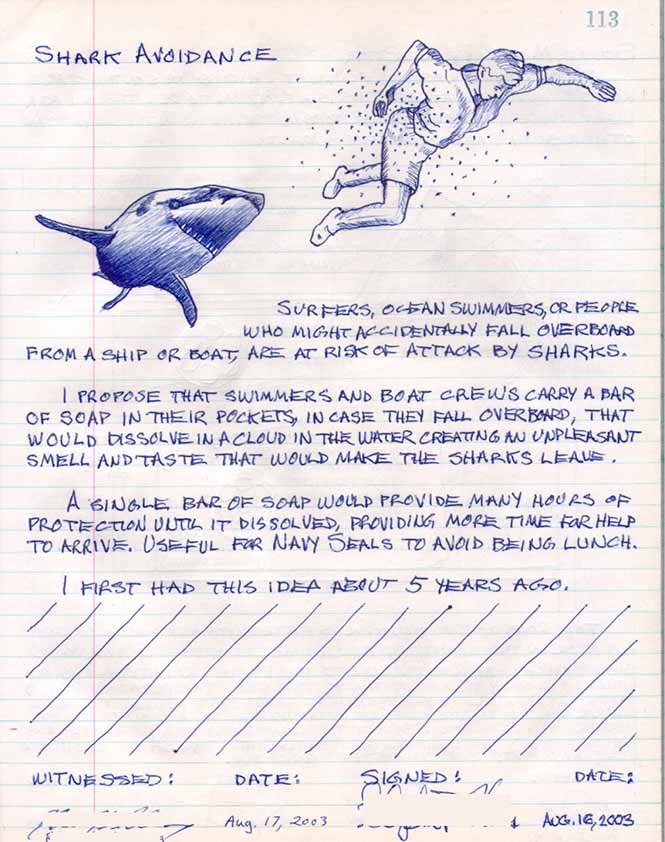 113
SHARK AVOIDANCE
SURFERS, OCEAN SWIMMERS, OR PEOPLE
WHO MIGHT ACCIDENTALLY FALL OVERBOARD
FROM A SHIP OR BOAT, ARE AT RISK OF ATTACK BY SHARKS.
I PROPOSE THAT SWIMMERS AND BOAT CREWS CARRY A BAR
OF SOAP IN THEIR POCKETS, IN CASE THEY FALL OVERBOARD, THAT
WOULD DISSOLVE IN A CLOUD IN THE WATER CREATING AN UNPLEASANT
SMELL AND TASTE THAT WOULD MAKE THE SHARKS LEAVE.
A SINGLE BAR OF SOAP WOULD PROVIDE MANY HOURS OF
PROTECTION UNTIL IT DISSOLVED, PROVIDING MORE TIME FOR HELP
TO ARRIVE. USEFUL FOR NAVY SEALS TO AVOID BEING LUNCH.
I FIRST HAD THIS IDEA ABOUT 5 YEARS AGO.
WITNESSED: DATE: SIGNED: DATE:
Aug. 17, 2003 AUG. 16, 2003